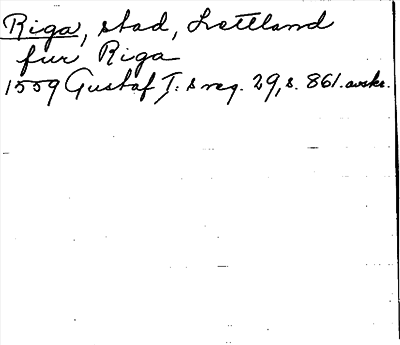 Riga, stad, Lettland
fur Riga
1559 Gustaf I:s reg. 29, s. 861. avskr.